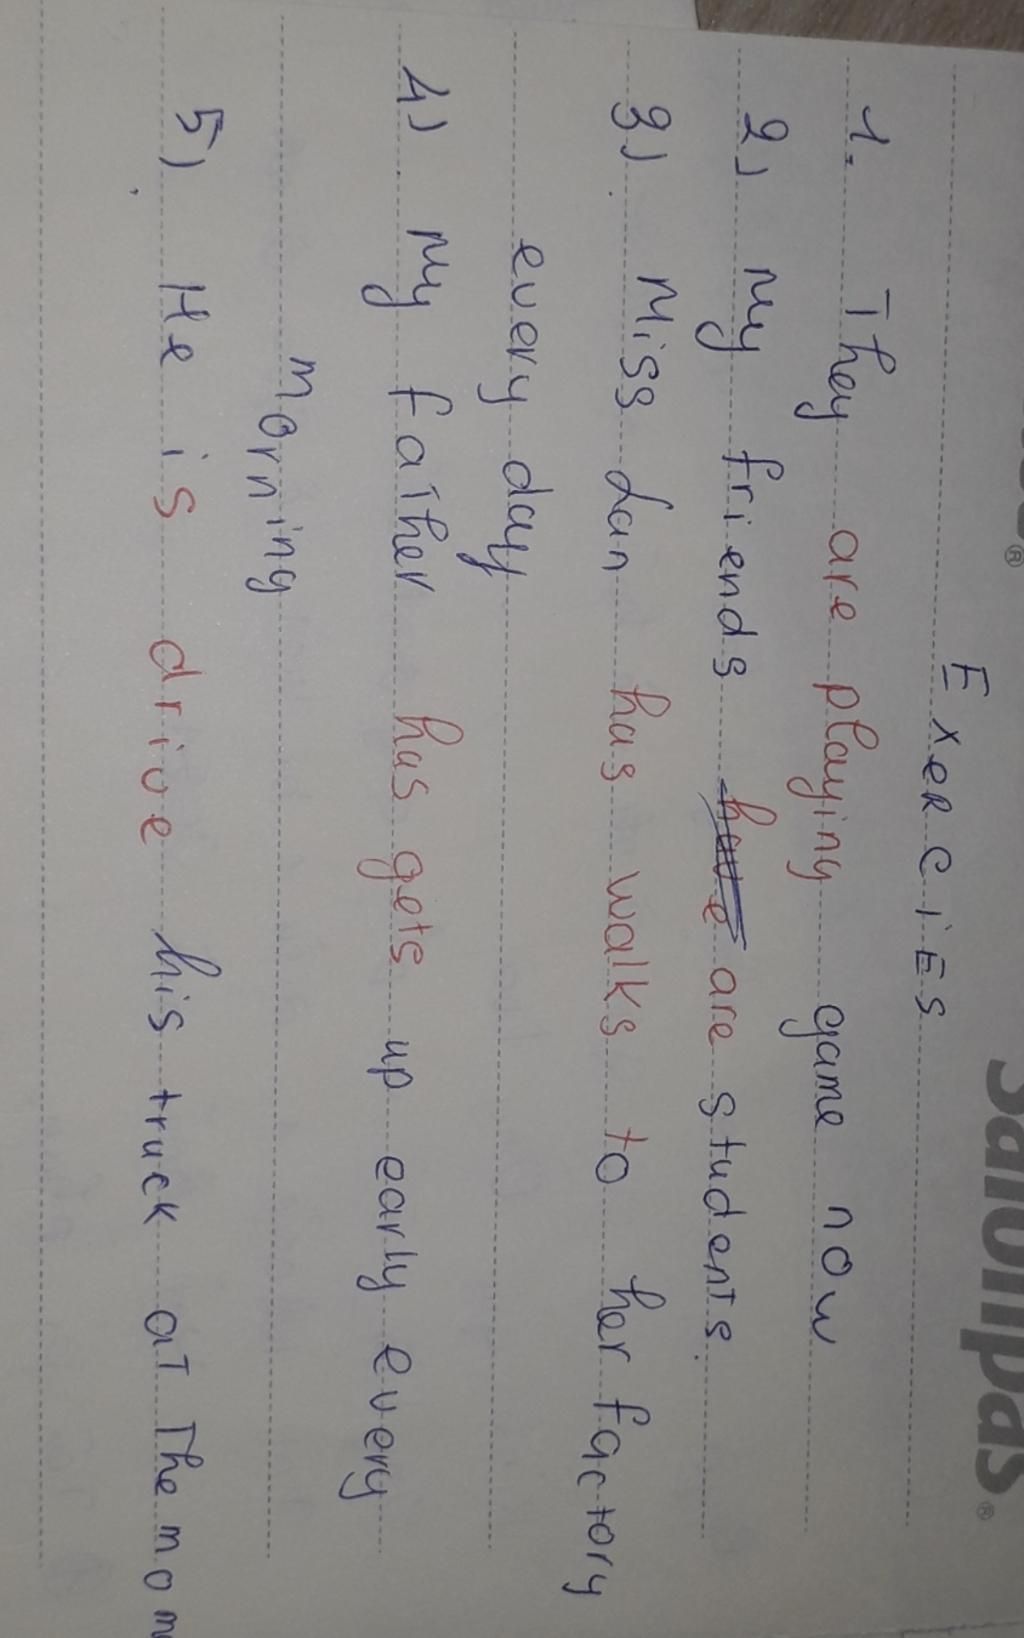 Salonpas®
®
ExERCiES
1. They are playing game now
2) My friends have are students.
3) Miss Lan has walks to her factory
every day
4) My father has gets up early every
morning
5) He is drive his truck at The mom